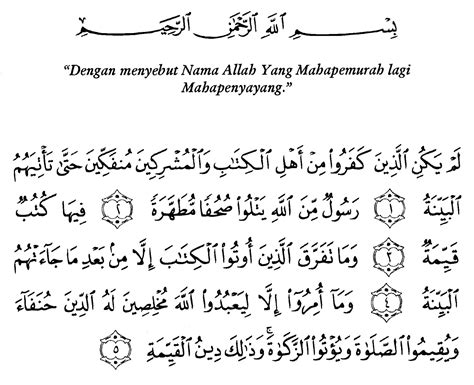 بِسْمِ اللَّهِ الرَّحْمَٰنِ الرَّحِيمِ
“Dengan menyebut Nama Allah Yang Mahapemurah lagi
Mahapenyayang.”
لَمْ يَكُنِ الَّذِينَ كَفَرُوا مِنْ أَهْلِ الْكِتَابِ وَالْمُشْرِكِينَ مُنفَكِّينَ حَتَّىٰ تَأْتِيَهُمُ
الْبَيِّنَةُ ۝١ رَسُولٌ مِّنَ اللَّهِ يَتْلُوا صُحُفًا مُّطَهَّرَةً ۝٢ فِيهَا كُتُبٌ
قَيِّمَةٌ ۝٣ وَمَا تَفَرَّقَ الَّذِينَ أُوتُوا الْكِتَابَ إِلَّا مِنْ بَعْدِ مَا جَاءَتْهُمُ
الْبَيِّنَةُ ۝٤ وَمَا أُمِرُوا إِلَّا لِيَعْبُدُوا اللَّهَ مُخْلِصِينَ لَهُ الدِّينَ حُنَفَاءَ
وَيُقِيمُوا الصَّلَوٰةَ وَيُؤْتُوا الزَّكَوٰةَ ۚ وَذَٰلِكَ دِينُ الْقَيِّمَةِ ۝٥